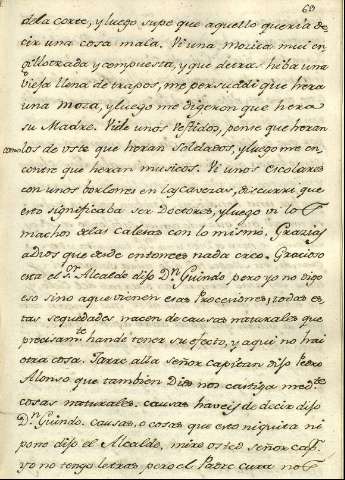 60
dela corte, y luego supe que aquello queria de
cir una cosa mala. Vi una mozita mui en
gillotrada y compuesta, y que detras hiba una
vieja llena de trapos, me persuadi que hera
una moza, y luego me digeron que hera
su Madre. Vide unos Vestidos, pense que heran
como los de Vste que heran Soldados, y luego me en
contre que heran musicos. Vi unos escolares
con unos borlones en las caveras, discurri que
esto significaba ser Doctores, y luego vi lo
machos de las calesas con lo mismo. Grazias
a dios que desde entonces nada creo. Gracioso
esta el Sr. Alcalde dijo Dn Guindo pero yo no digo
eso sino aque vienen esas Procesiones, todas es
tas sequedades nacen de causas naturales que
precisamte. hande tener su efecto, y aqui no hai
otra cosa. Tarre alla señor capitan dijo Pedro
Alonso que tambien Dios nos castiga medte.
cosas naturales. causas haveis de decir dijo
Dn Guindo. causas, o cosas que esto niquita ni
pone dijo el Alcalde, mire osted señor capn.
yo no tengo letras pero el Padre cura no